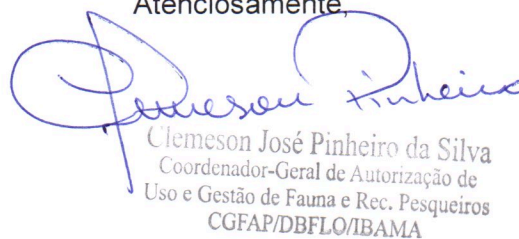 Atenciosamente,
Clemeson Pinheiro
Clemeson José Pinheiro da Silva
Coordenador-Geral de Autorização de
Uso e Gestão de Fauna e Rec. Pesqueiros
CGFAP/DBFLO/IBAMA